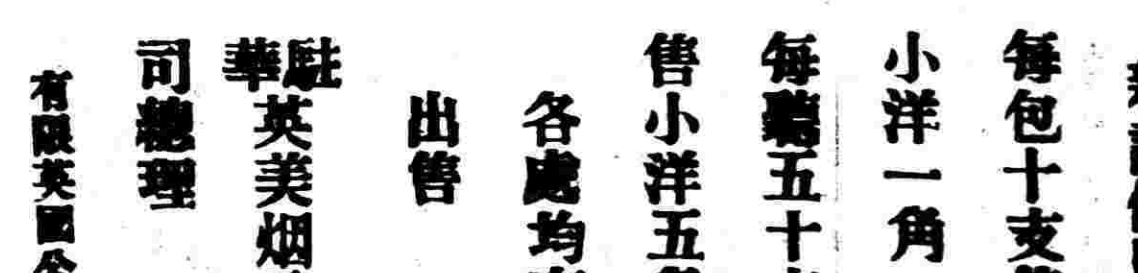 每包十支
小洋一角
每聽五十
售小洋五
各處均
出售
駐華英美烟
司總理
有限英國公